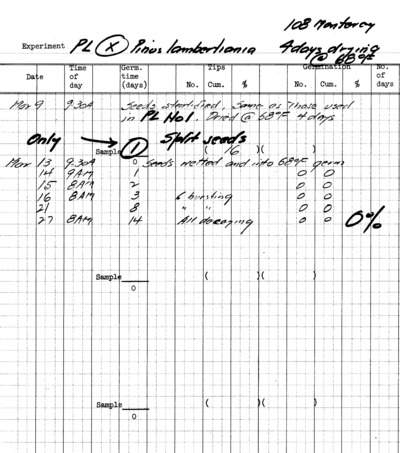 108 Monterey
Experiment PL (X) Pinus lambertiania 4 days drying
@ 68°F
Date Time of day Germ. time (days) Tips No. Cum. % Germination No. Cum. % No. of days
Mar 9 9:30A Seeds stratified, same as those used
in PL No1. Dried @ 68°F 4 days
Only → Sample 1 Split seeds
( 16 )( )
0
Mar 13 9:30A 0 Seeds wetted and into 68°F germ
14 9AM 1 0 0
15 8AM 2 0 0
16 8AM 3 6 bursting 0 0
21 8 " " 0 0
27 8AM 14 All decaying 0 0 0%
Sample ( )( )
0
Sample ( )( )
0